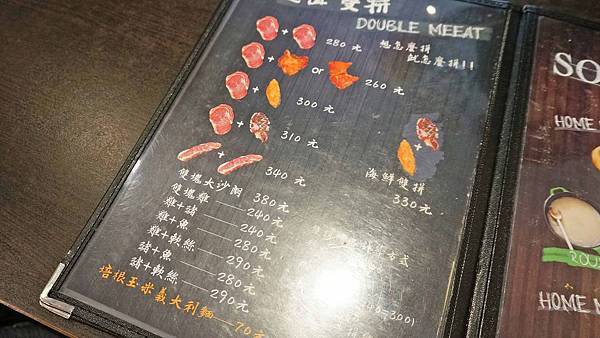 雙拼
DOUBLE MEEAT
280 元
想怎麼拼
就怎麼拼!!
or
260 元
300 元
310 元
340 元
海鮮雙拼
330元
雙塊大沙朗 380元
雙塊雞 240元
雞+豬 240元
雞+魚 280元
雞+軟絲 290元
豬+魚 280元
豬+軟絲 290元
培根玉米義大利麵 70元
SO
HOME
HOME M